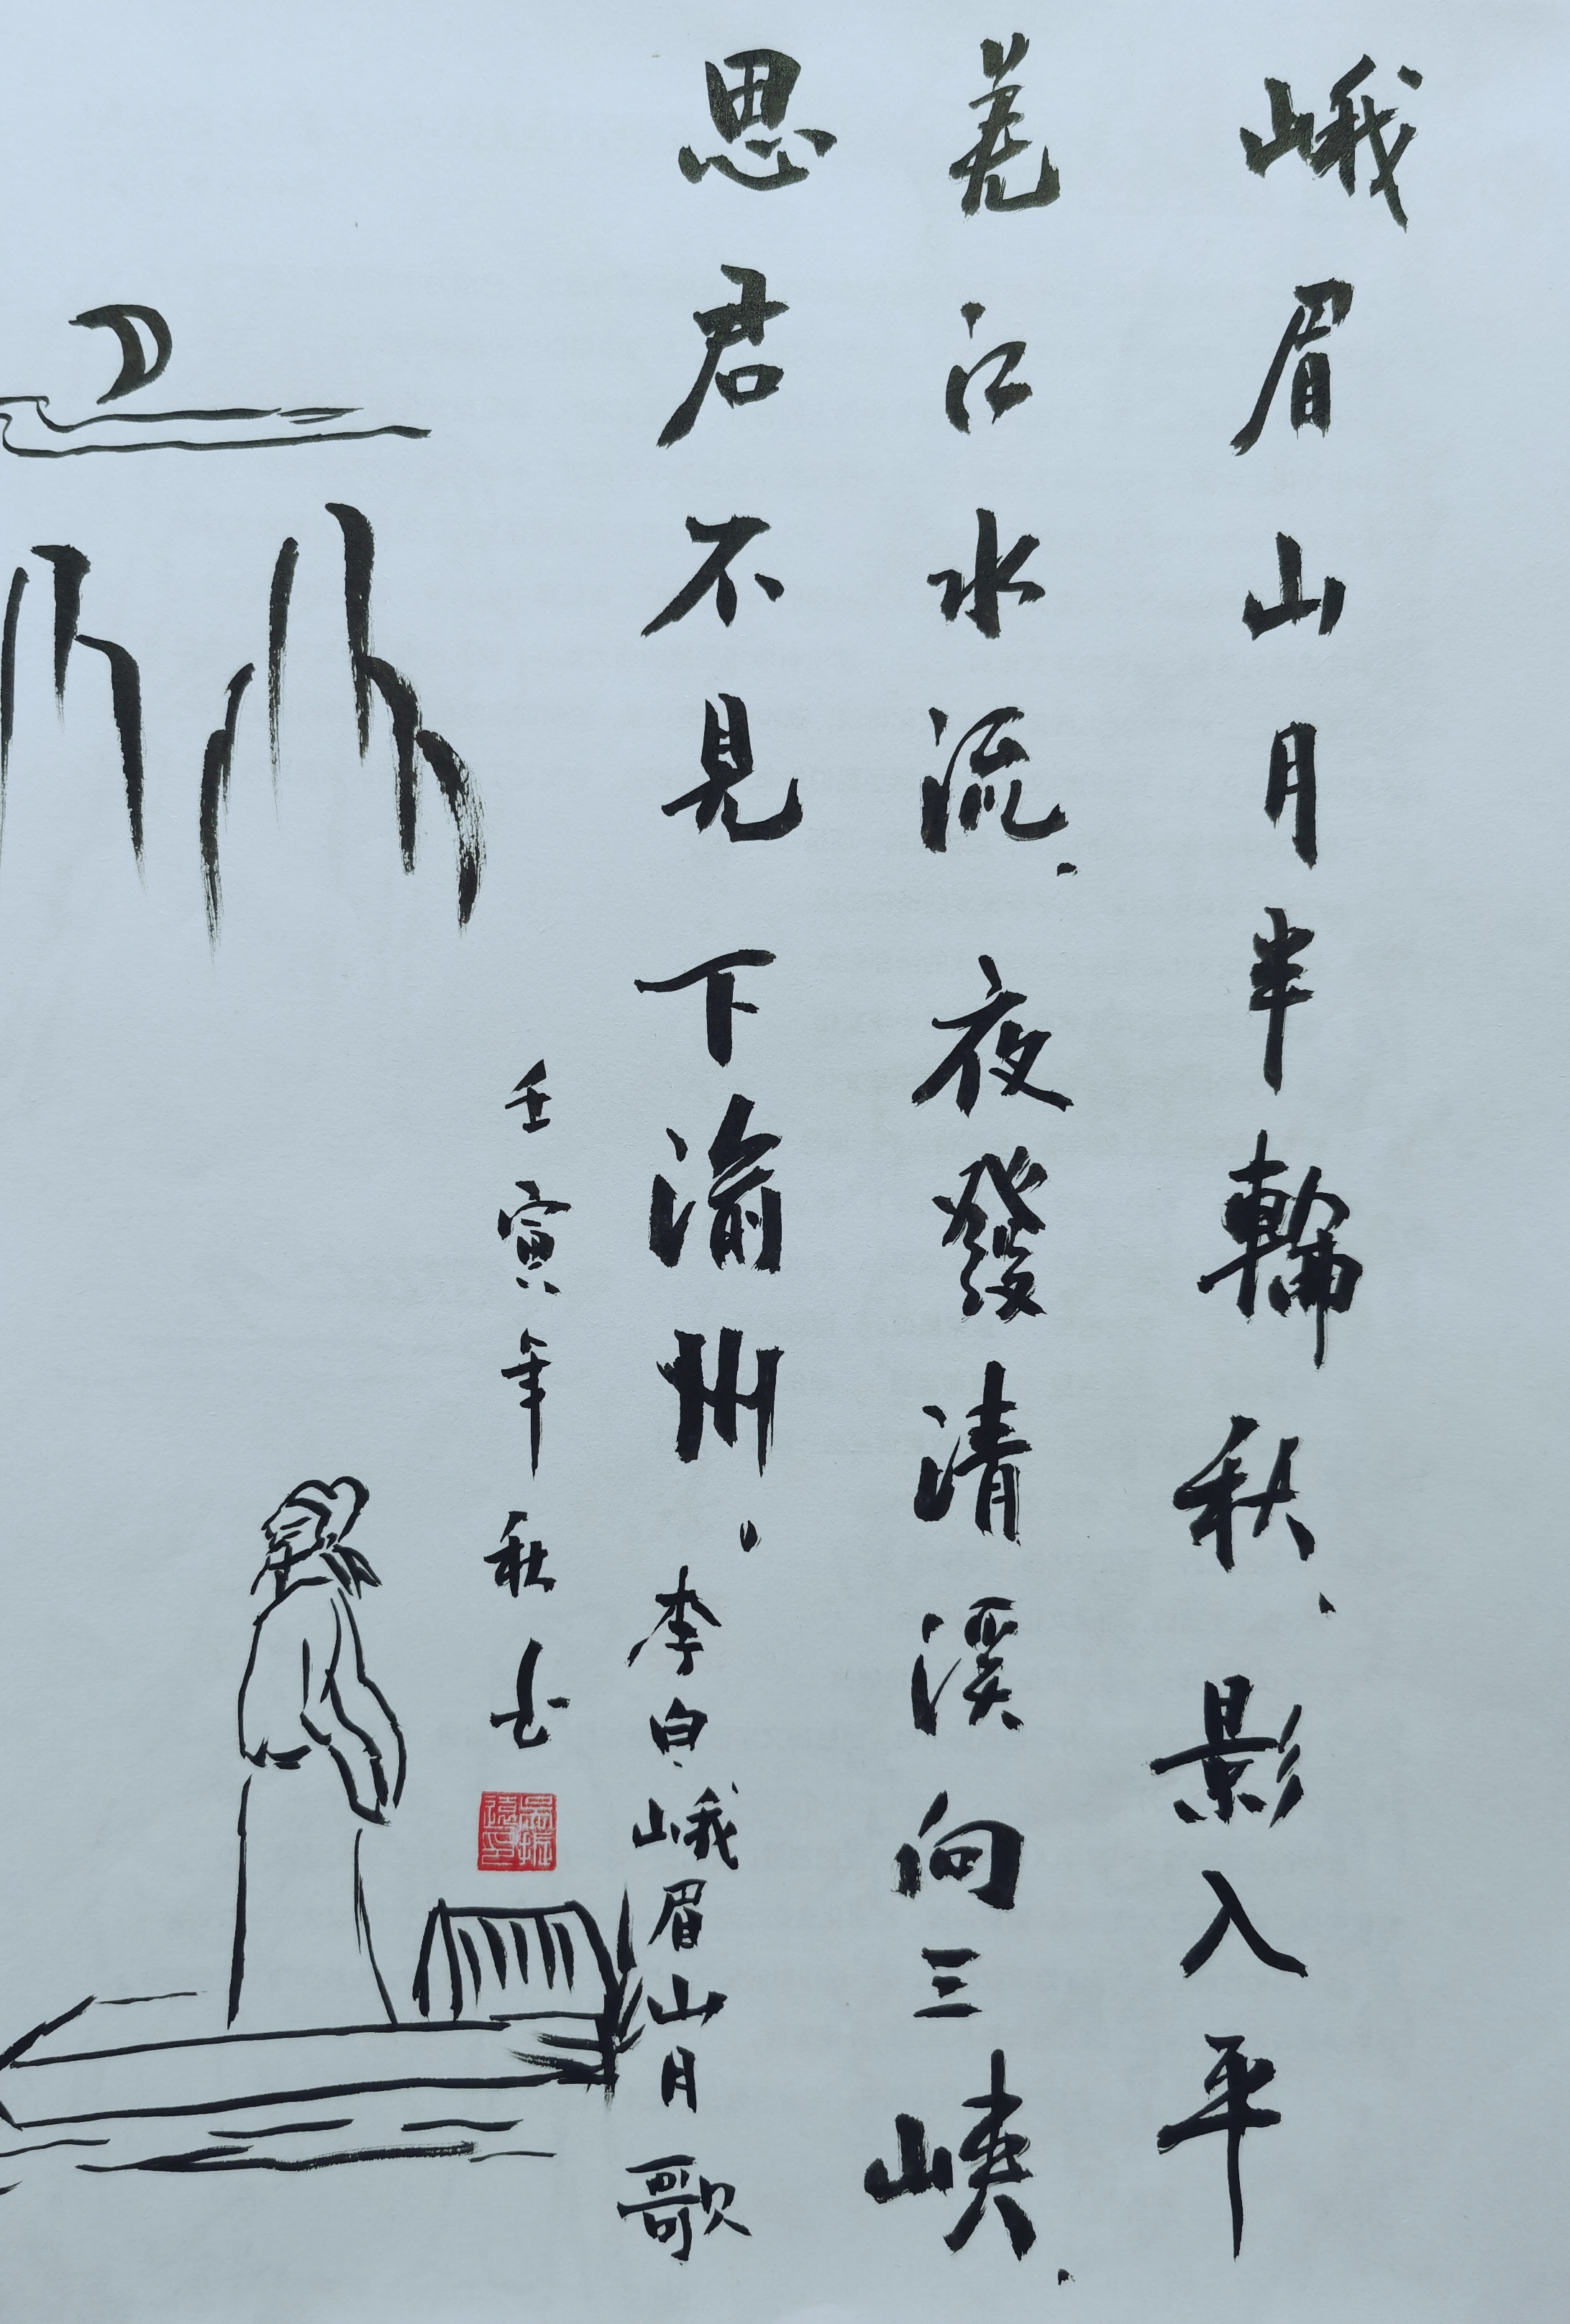 峨眉山月半輪秋、影入平
羌江水流.夜發清溪向三峡.
思君不見下渝州。李白峨眉山月歌
壬寅年秋